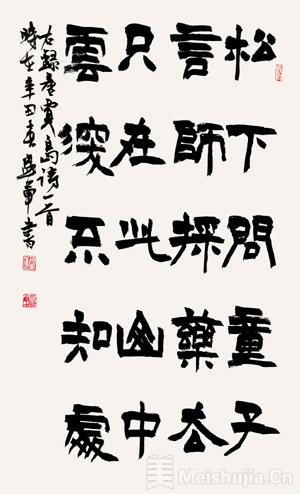 松下問童子
言師採藥去
只在此山中
雲深不知處
右錄唐賈島詩一首
時在辛丑春書
美 Meishujia.Cn